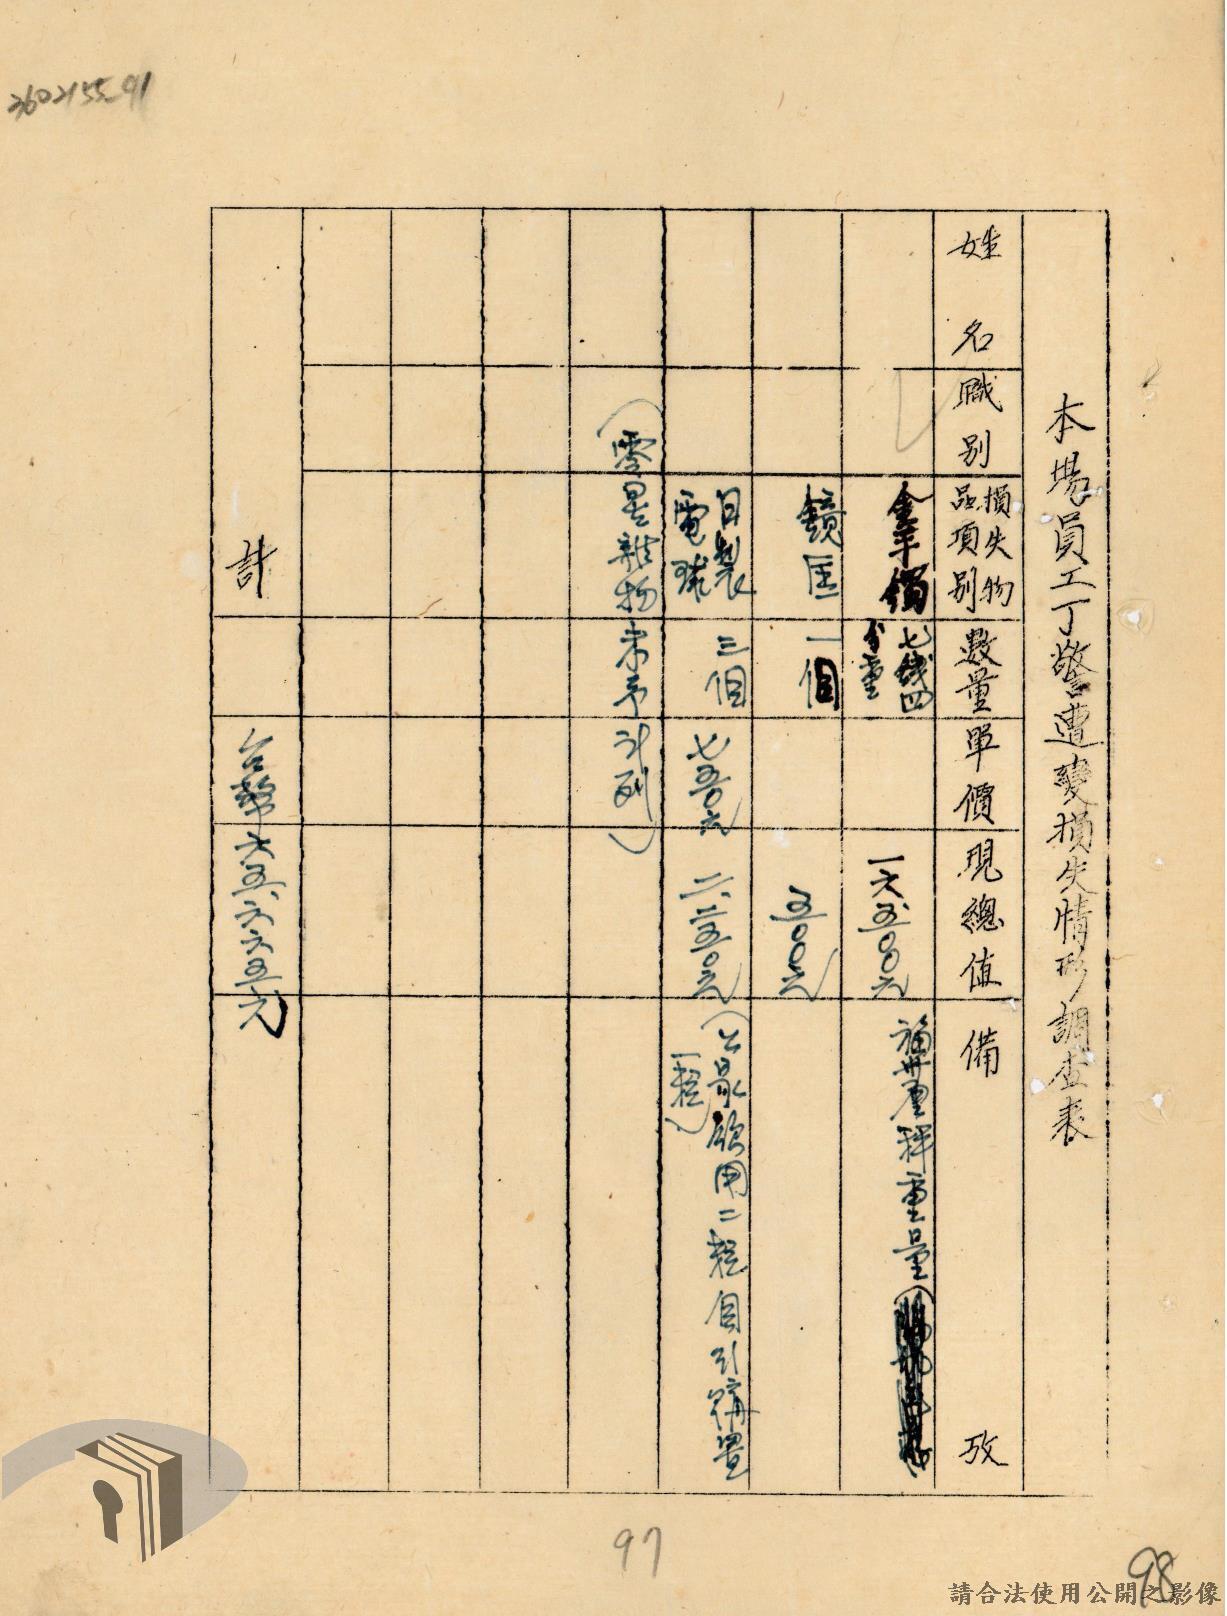 3602155-91
本場員工丁警遭變損失情形調查表
姓名
職別
損失物
品項別
數量
單價
現總值
備攷
金手鐲
七錢四
分重
一六五〇〇元
福州厘秤重量
鏡匡
一個
五〇〇元
自製
電球
三個
七五〇元
二.二五〇元
用二
自引購置
(零星雜物未予計列)
計
台幣六五.六六五元
97
98
請合法使用公開之影像